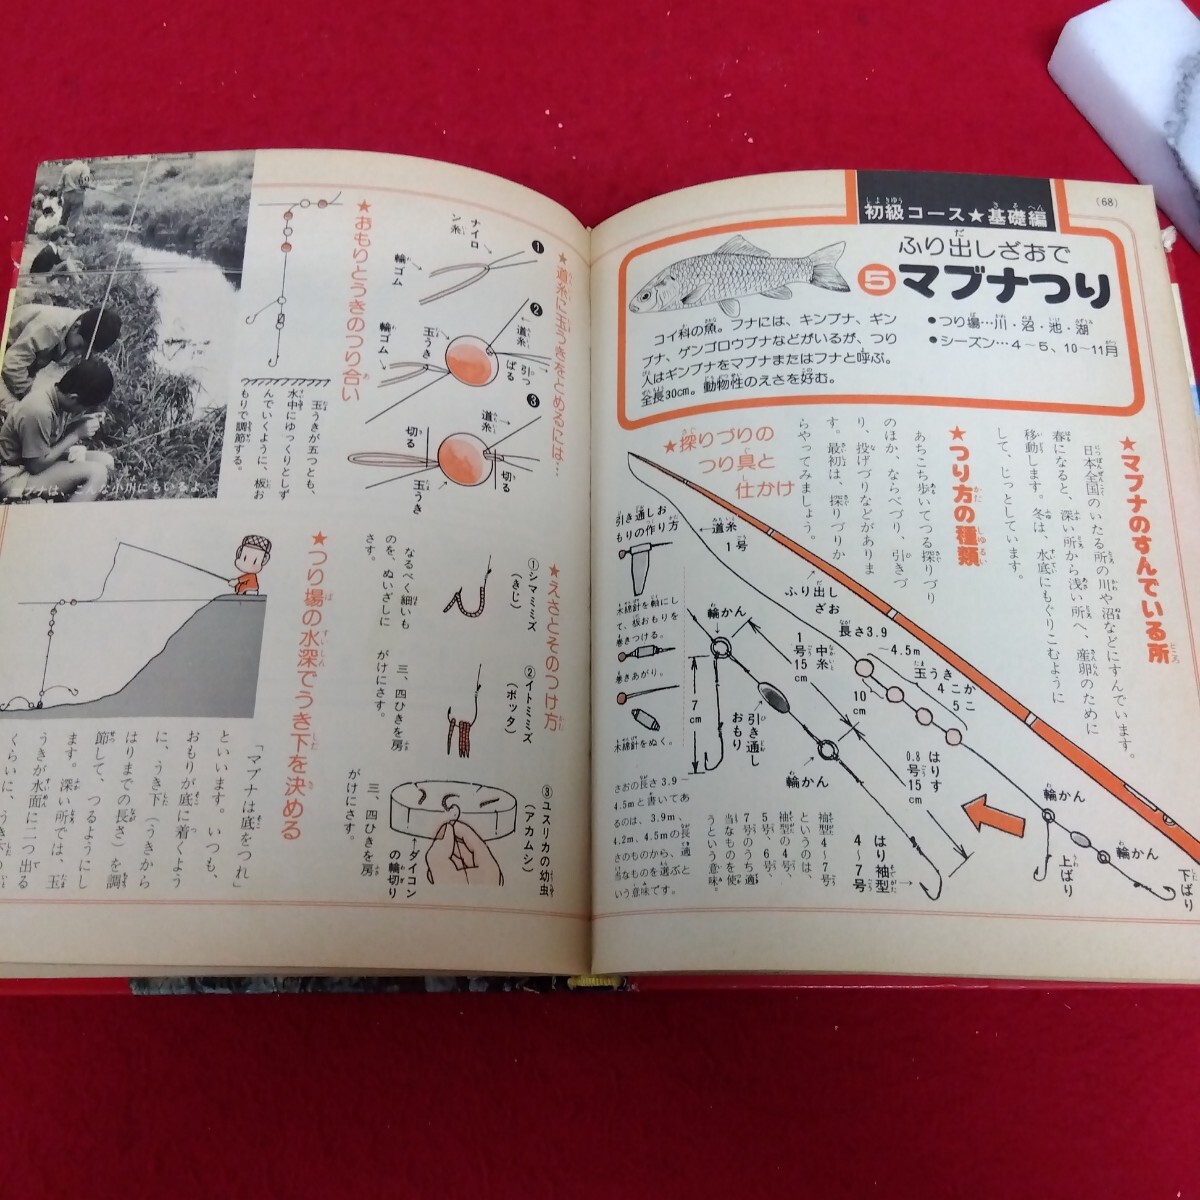 (68)
初級コース★基礎編
ふり出しざおで
⑤マブナつり
●つり場…川・沼・池・湖
●シーズン…4〜5、10〜11月
コイ科の魚。フナには、キンブナ、ギン
ブナ、ゲンゴロウブナなどがいるが、つり
人はギンブナをマブナまたはフナと呼ぶ。
全長30cm。動物性のえさを好む。
★マブナのすんでいる所
日本全国のいたる所の川や沼などにすんでいます。
春になると、深い所から浅い所へ、産卵のために
移動します。冬は、水底にもぐりこむように
して、じっとしています。
★つり方の種類
あちこち歩いてつる探りづり
のほか、ならべづり、引きづ
り、投げづりなどがありま
す。最初は、探りづりか
らやってみましょう。
★探りづりの
つり具と
仕かけ
引き通しお
もりの作り方
木綿針を軸にし
て、板おもりを
巻きつける。
巻きあがり。
木綿針をぬく。
道糸
1号
ふり出し
ざお
長さ3.9
〜4.5m
玉うき
4こか
5こ
輪かん
中糸
1号
15cm
10cm
7cm
引き通し
おもり
輪かん
はりす
0.8号
15cm
はり袖型
4〜7号
輪かん
輪かん
上ばり
下ばり
袖型4〜7号
というのは、
袖型の4号、
5号、6号、
7号のうち適
当なものを使
うという意味。
さおの長さ3.9〜
4.5mと書いてあ
るのは、3.9m、
4.2m、4.5mの長
さのものから、適
当なものを選ぶと
いう意味です。
69
★道糸に玉うきをとめるには…
❶
ナイロ
ン糸
輪ゴム
❷
道糸
引っ
ぱる
玉うき
輪ゴム
❸
道糸
切る
切る
玉うき
★おもりとうきのつり合い
玉うきが五つとも、
水中にゆっくりとしず
んでいくように、板お
もりで調節する。
フナは、こんな小川にもいるよ
★えさとそのつけ方
①シマミミズ
(きじ)
なるべく細いも
のを、ぬいざしに
さす。
②イトミミズ
(ボッタ)
三、四ひきを房
がけにさす。
③ユスリカの幼虫
(アカムシ)
ダイコン
の輪切り
三、四ひきを房
がけにさす。
★つり場の水深でうき下を決める
「マブナは底をつれ」
といいます。いつも、
おもりが底に着くよう
に、うき下(うきから
はりまでの長さ)を調
節して、つるようにし
ます。深い所では、玉
うきが水面に二つ出る
くらいに、うき